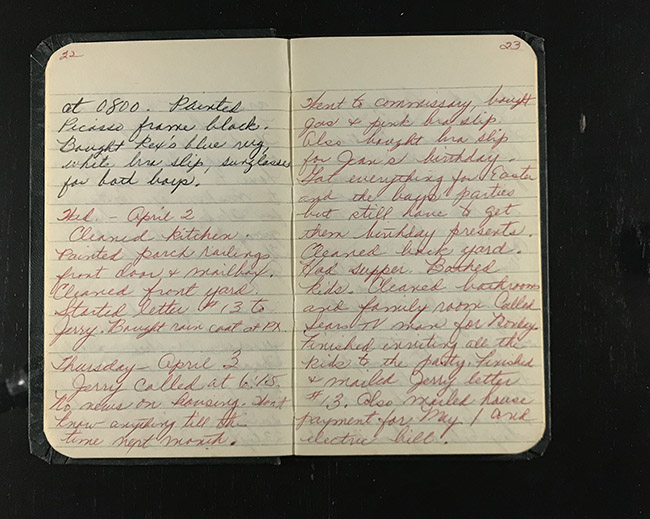 22
at 0800. Painted
Picasso frame black.
Bought Rex's blue rug,
white bra slip, sunglasses
for both boys.
Wed. - April 2
Cleaned kitchen.
Painted porch railings
front door & mailbox.
Cleaned front yard.
Started letter #13 to
Jerry. Bought rain coat at PX.
Thursday - April 3
Jerry called at 6:15.
No news on housing. Wont
know anything till the
time next month.
23
Went to commissary, bought
gas & pink bra slip.
Also bought bra slip
for Jean's birthday.
Got everything for Easter
and the boys parties
but still have to get
them birthday presents.
Cleaned back yard.
Had supper. Bathed
kids. Cleaned bathroom
and family room. Called
Sears TV man for Monday.
Finished inviting all the
kids to the party. Finished
& mailed Jerry letter
#13. Also mailed house
payment for May 1 and
electric bill.